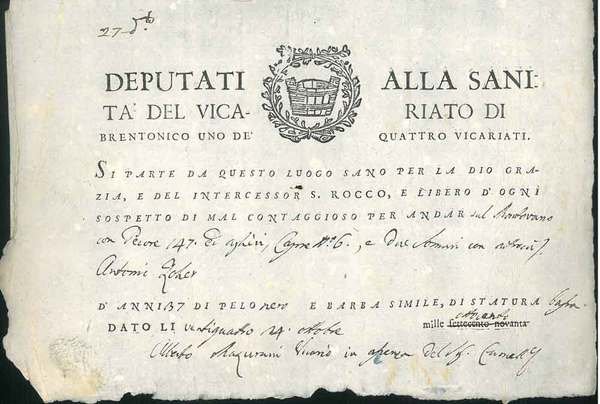 27
DEPUTATI ALLA SANI-
TA' DEL VICA- RIATO DI
BRENTONICO UNO DE' QUATTRO VICARIATI.
SI PARTE DA QUESTO LUOGO SANO PER LA DIO GRA-
ZIA, E DEL INTERCESSOR S. ROCCO, E LIBERO D'OGNI
SOSPETTO DI MAL CONTAGGIOSO PER ANDAR sul Mantovano
con Pecore 147. Capre N.º 6., e due Somari con
Antonio
D'ANNI 37 DI PELO nero E BARBA SIMILE, DI STATURA bassa
DATO LI ventiquatro 24 ottobre mille settecento novanta
Alberto in del